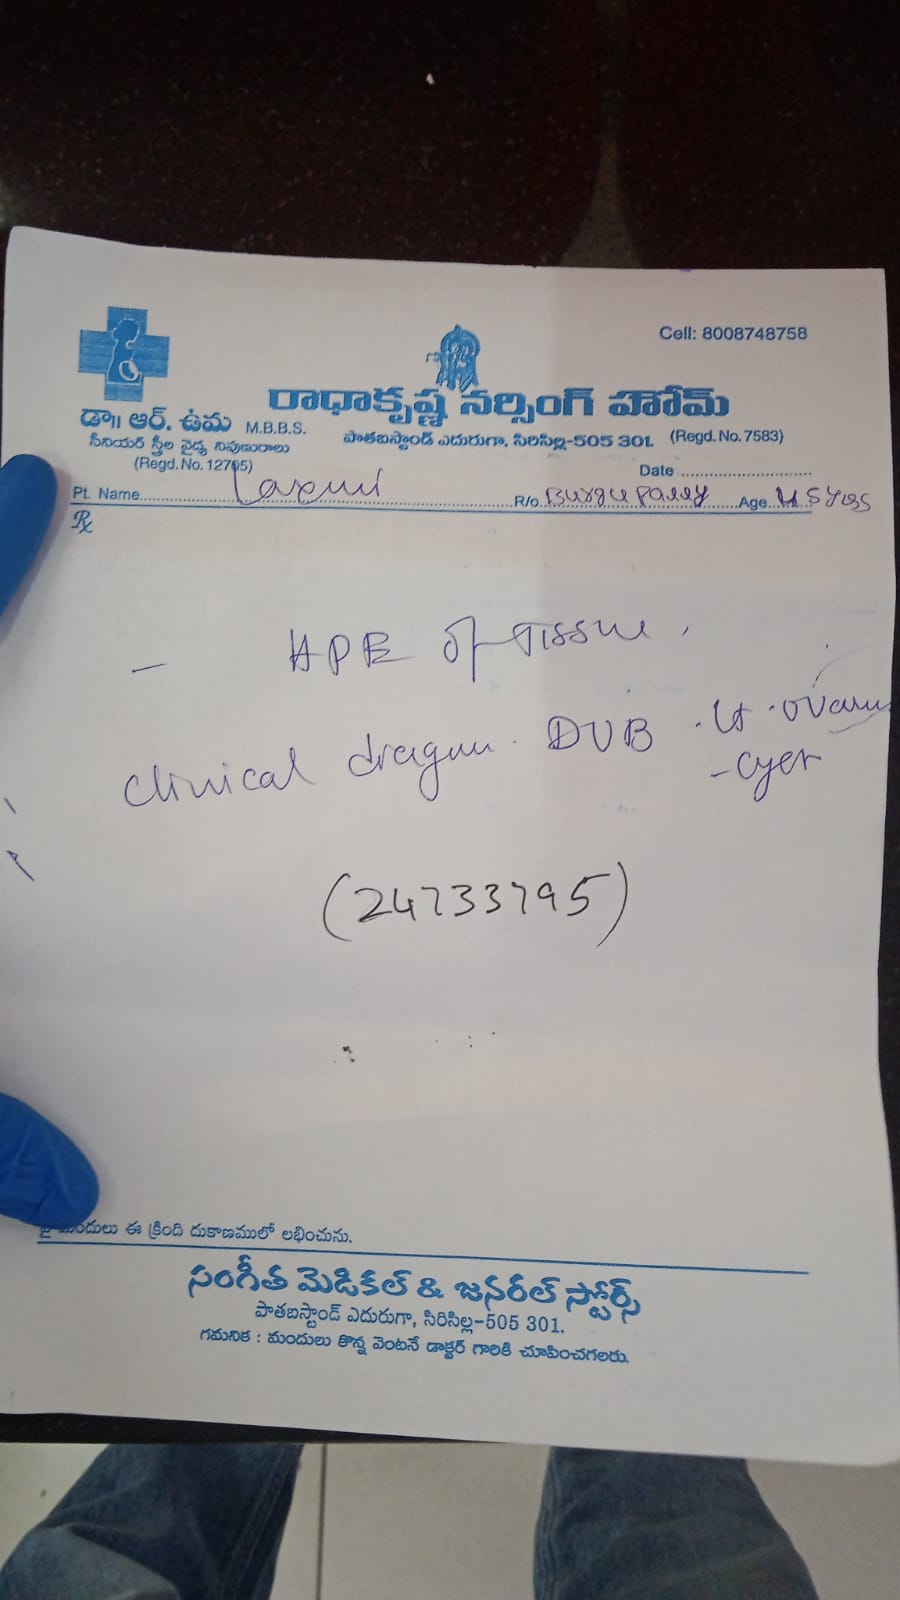 Cell: 8008748758
రాధాకృష్ణ నర్సింగ్ హోమ్
డా॥ ఆర్. ఉమ M.B.B.S.
సీనియర్ స్త్రీల వైద్య నిపుణురాలు
(Regd. No. 12705)
పాతబస్టాండ్ ఎదురుగా, సిరిసిల్ల-505 301. (Regd. No. 7583)
Date
Pt. Name Laxmi R/o Age 45 yrs
Rx
- HPE of Tissue.
clinical DUB . Lt . ovarian
- cyst
(24733795)
మందులు ఈ క్రింది దుకాణములో లభించును.
సంగీత మెడికల్ & జనరల్ స్టోర్స్
పాతబస్టాండ్ ఎదురుగా, సిరిసిల్ల-505 301.
గమనిక : మందులు కొన్న వెంటనే డాక్టర్ గారికి చూపించగలరు.